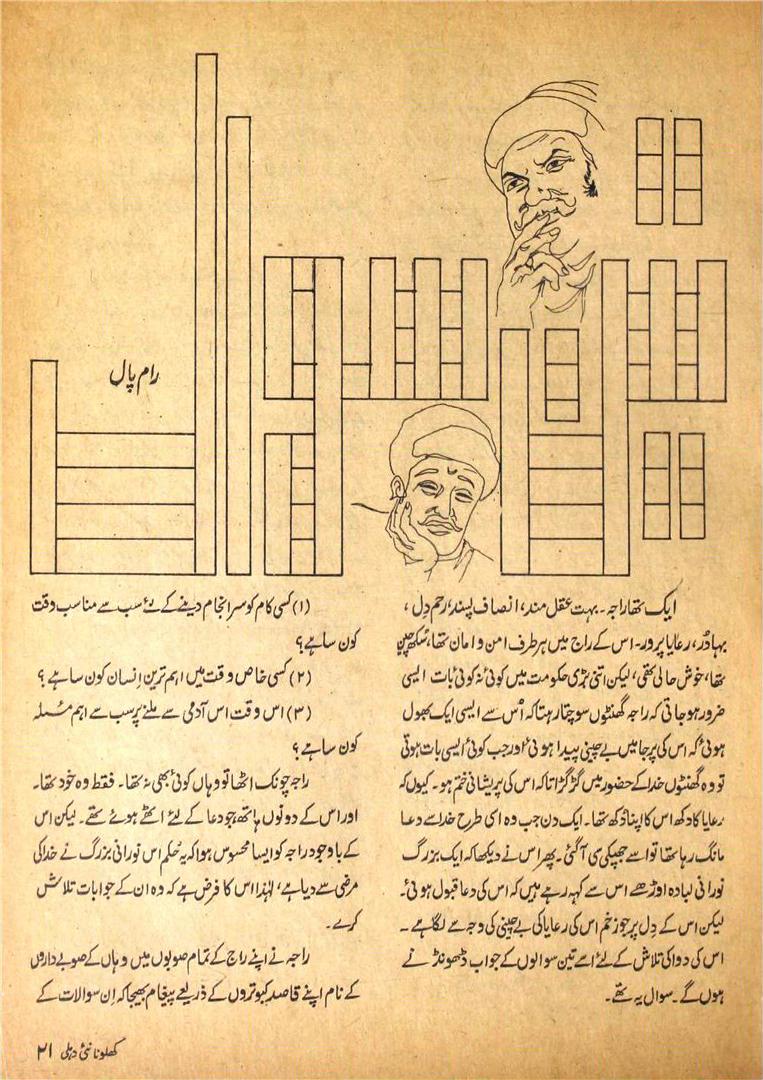 رام پال
ایک تھا راجہ ۔ بہت عقل مند، انصاف پسند، رحم دِل ،
بہادُر، رعایا پرور۔ اس کے راج میں ہر طرف امن و امان تھا، سُکھ چین
تھا، خوش حالی تھی، لیکن اتنی بڑی حکومت میں کوئی نہ کوئی بات ایسی
ضرور ہو جاتی کہ راجہ گھنٹوں سوچتا رہتا کہ اُس سے ایسی ایک بھول
ہوئی کہ اس کی پرجا میں بے چینی پیدا ہوئی اور جب کوئی ایسی بات ہوتی
تو وہ گھنٹوں خدا کے حضور میں گڑگڑاتا کہ اس کی پریشانی ختم ہو۔ کیوں کہ
رعایا کا دُکھ اس کا اپنا دُکھ تھا۔ ایک دن جب وہ اسی طرح خدا سے دعا
مانگ رہا تھا تو اسے جھپکی سی آگئی۔ پھر اس نے دیکھا کہ ایک بزرگ
نورانی لبادہ اوڑھے اس سے کہہ رہے ہیں کہ اس کی دعا قبول ہوئی۔
لیکن اس کے دِل پر جو زخم اس کی رعایا کی بے چینی کی وجہ سے لگا ہے ۔
اس کی دوا کی تلاش کے لئے اسے تین سوالوں کے جواب ڈھونڈ نے
ہوں گے ۔ سوال یہ تھے۔
(۱) کسی کام کو سر انجام دینے کے لئے سب سے مناسب وقت
کون سا ہے؟
(۲) کسی خاص وقت میں اہم ترین اِنسان کون سا ہے ؟
(۳) اس وقت اس آدمی سے ملنے پر سب سے اہم مسئلہ
کون سا ہے ؟
راجہ چونک اٹھا تو وہاں کوئی بھی نہ تھا۔ فقط وہ خود تھا۔
اور اس کے دونوں ہاتھ جو دعا کے لئے اٹھے ہوئے تھے ۔ لیکن اس
کے باوجود راجہ کو ایسا محسوس ہوا کہ یہ حُکم اس نورانی بزرگ نے خدا کی
مرضی سے دیا ہے ، لہٰذا اس کا فرض ہے کہ وہ ان کے جوابات تلاش
کرے ۔
راجہ نے اپنے راج کے تمام صوبوں میں وہاں کے صوبے داروں
کے نام اپنے قاصد کبوتروں کے ذریعے پیغام بھیجا کہ اِن سوالات کے
کھلونا نئی دہلی ۲۱